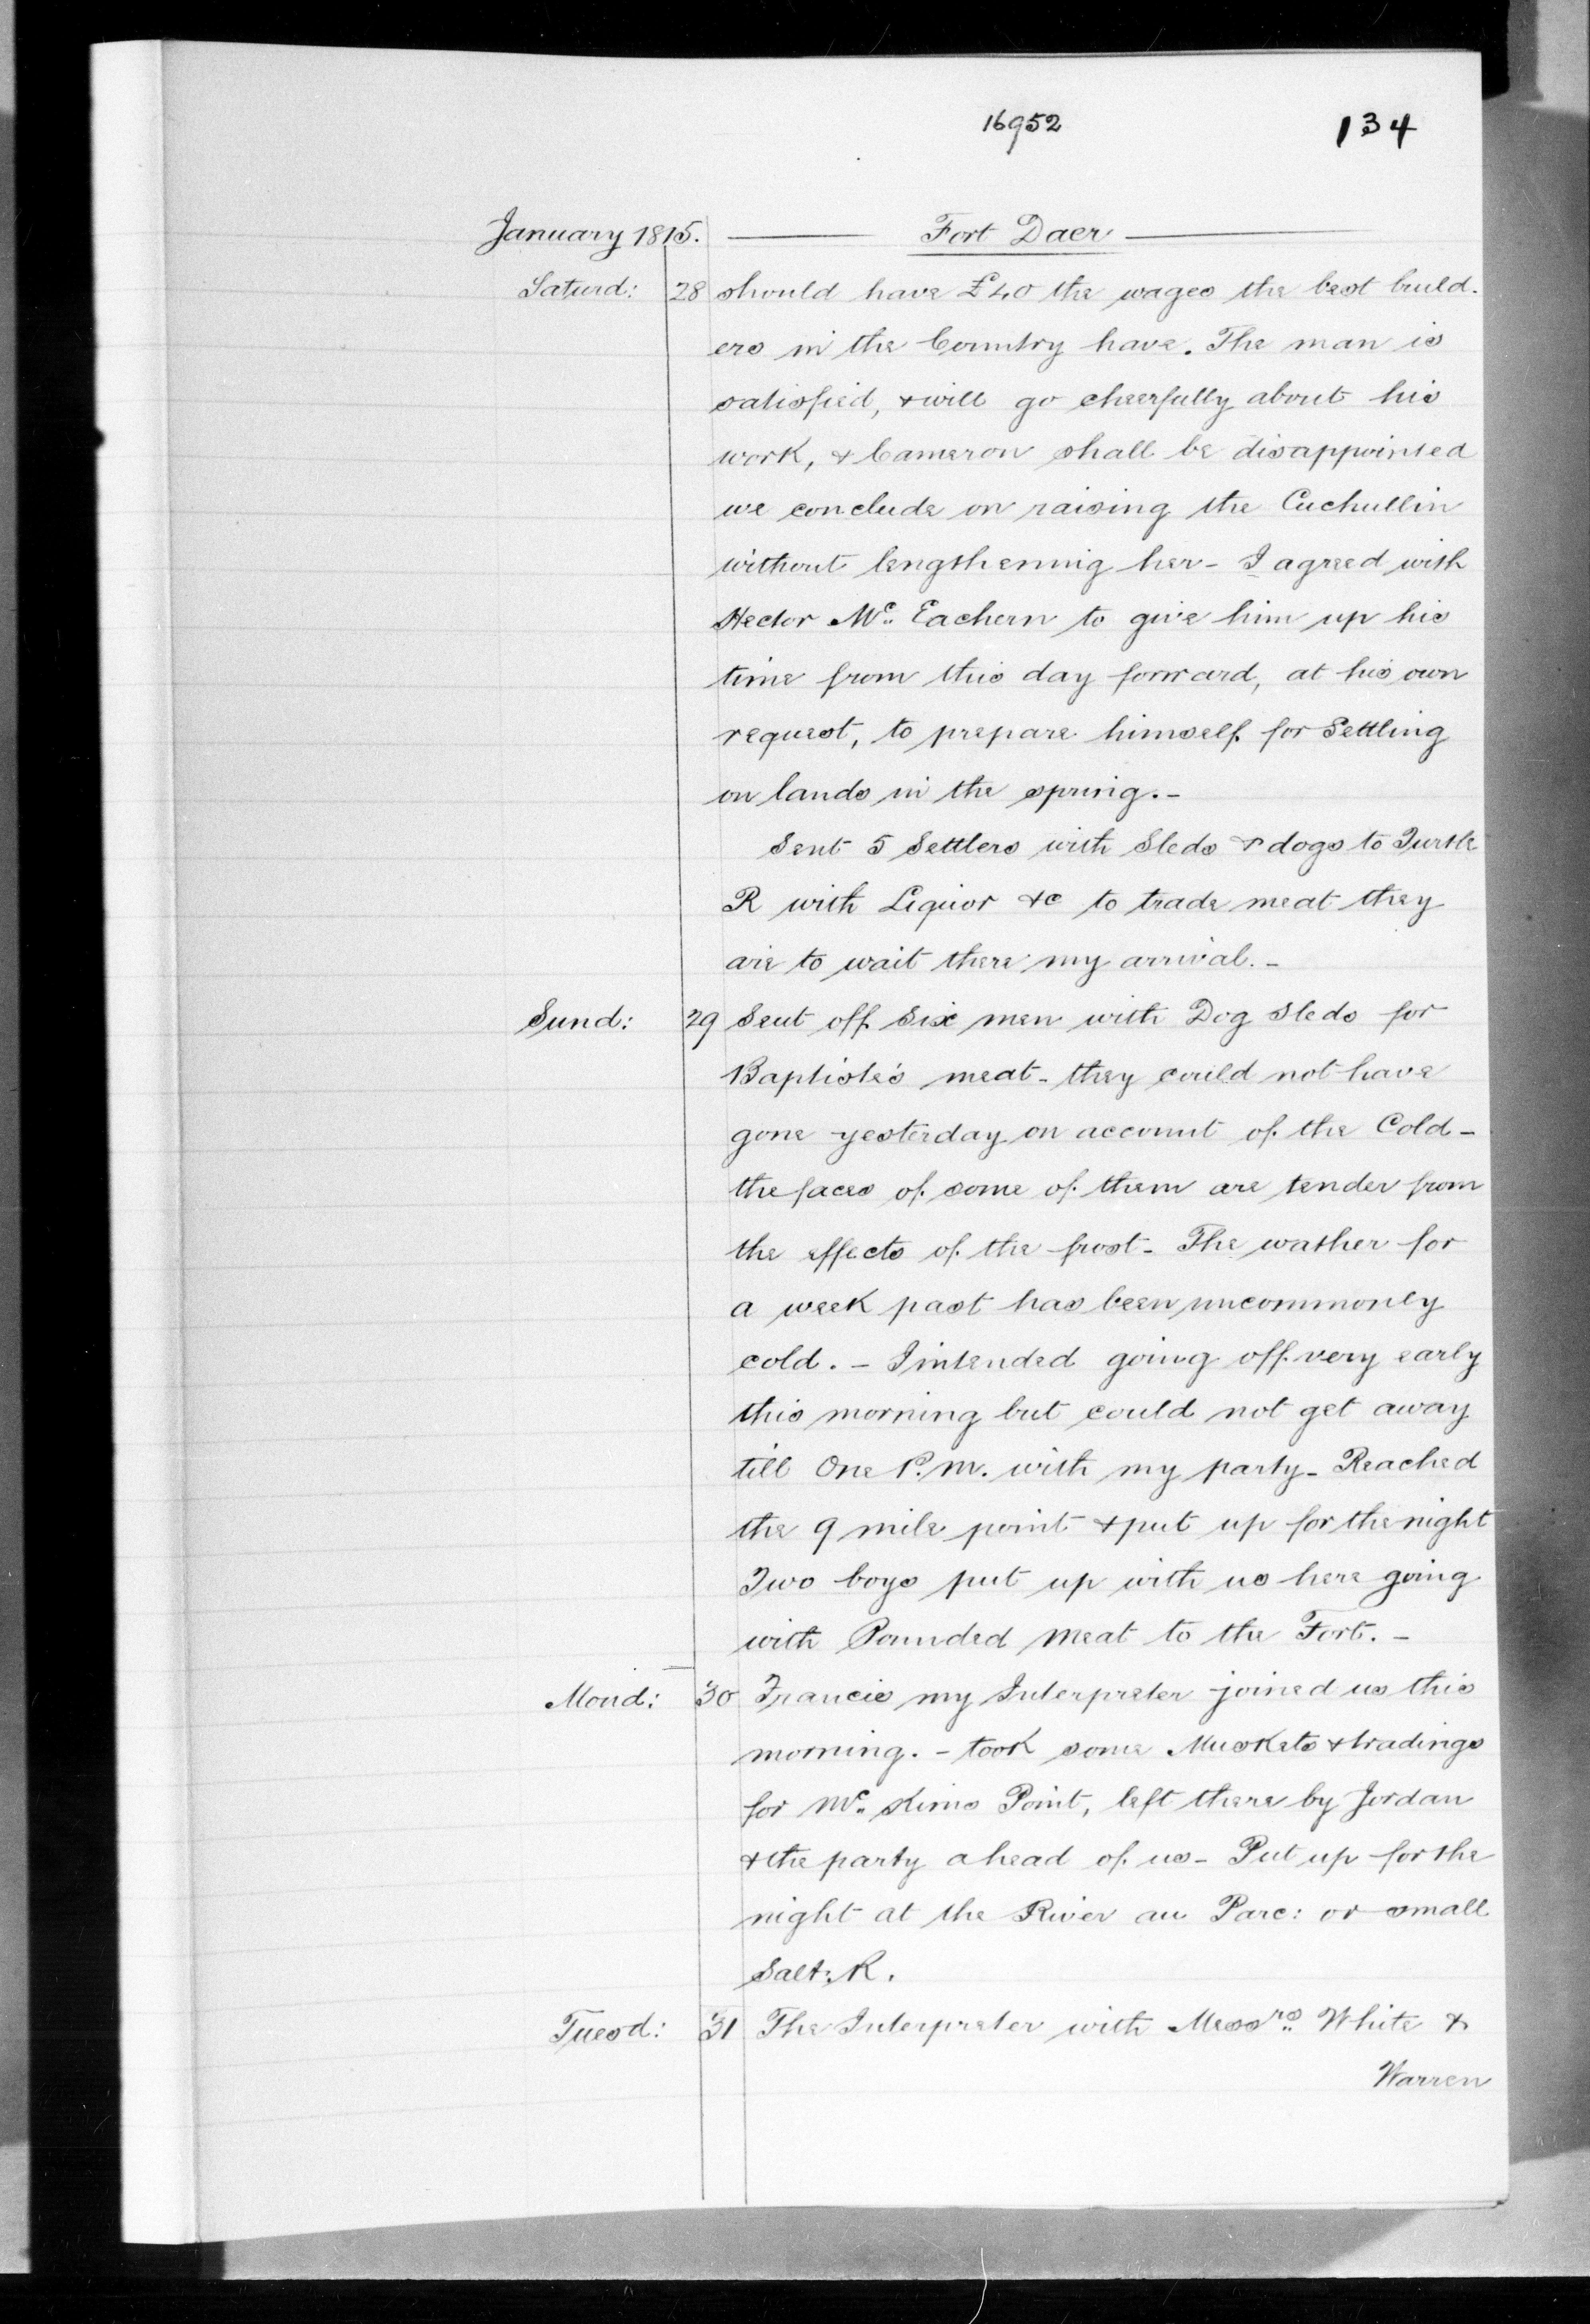 16952 134
January 1815. Fort Daer
Saturd: 28 should have £40 the wages the best build-
ers in the Country have. The man is
satisfied, & will go cheerfully about his
work, & Cameron shall be disappointed
we conclude on raising the Cuchullin
without lengthening her - I agreed with
Hector Mc. Eachern to give him up his
time from this day forward, at his own
request, to prepare himself for Settling
on lands in the spring. -
Sent 5 Settlers with Sleds & dogs to Turtle
R with Liquor &c to trade meat they
are to wait there my arrival. -
Sund: 29 Sent off Six men with Dog Sleds for
Baptiste's meat - they could not have
gone yesterday on account of the Cold -
the faces of some of them are tender from
the effects of the frost - The wather for
a week past has been uncommonly
cold. - I intended going off very early
this morning but could not get away
till One P.M. with my party - Reached
the 9 mile point & put up for the night
Two boys put up with us here going
with Pounded Meat to the Fort. -
Mond: 30 Francis my Interpreter joined us this
morning. - took some Muskets & tradings
for Mc. Kims Point, left there by Jordan
& the party ahead of us - Put up for the
night at the River au Parc: or small
Salt: R.
Tuesd: 31 The Interpreter with Messrs. White &
Warren